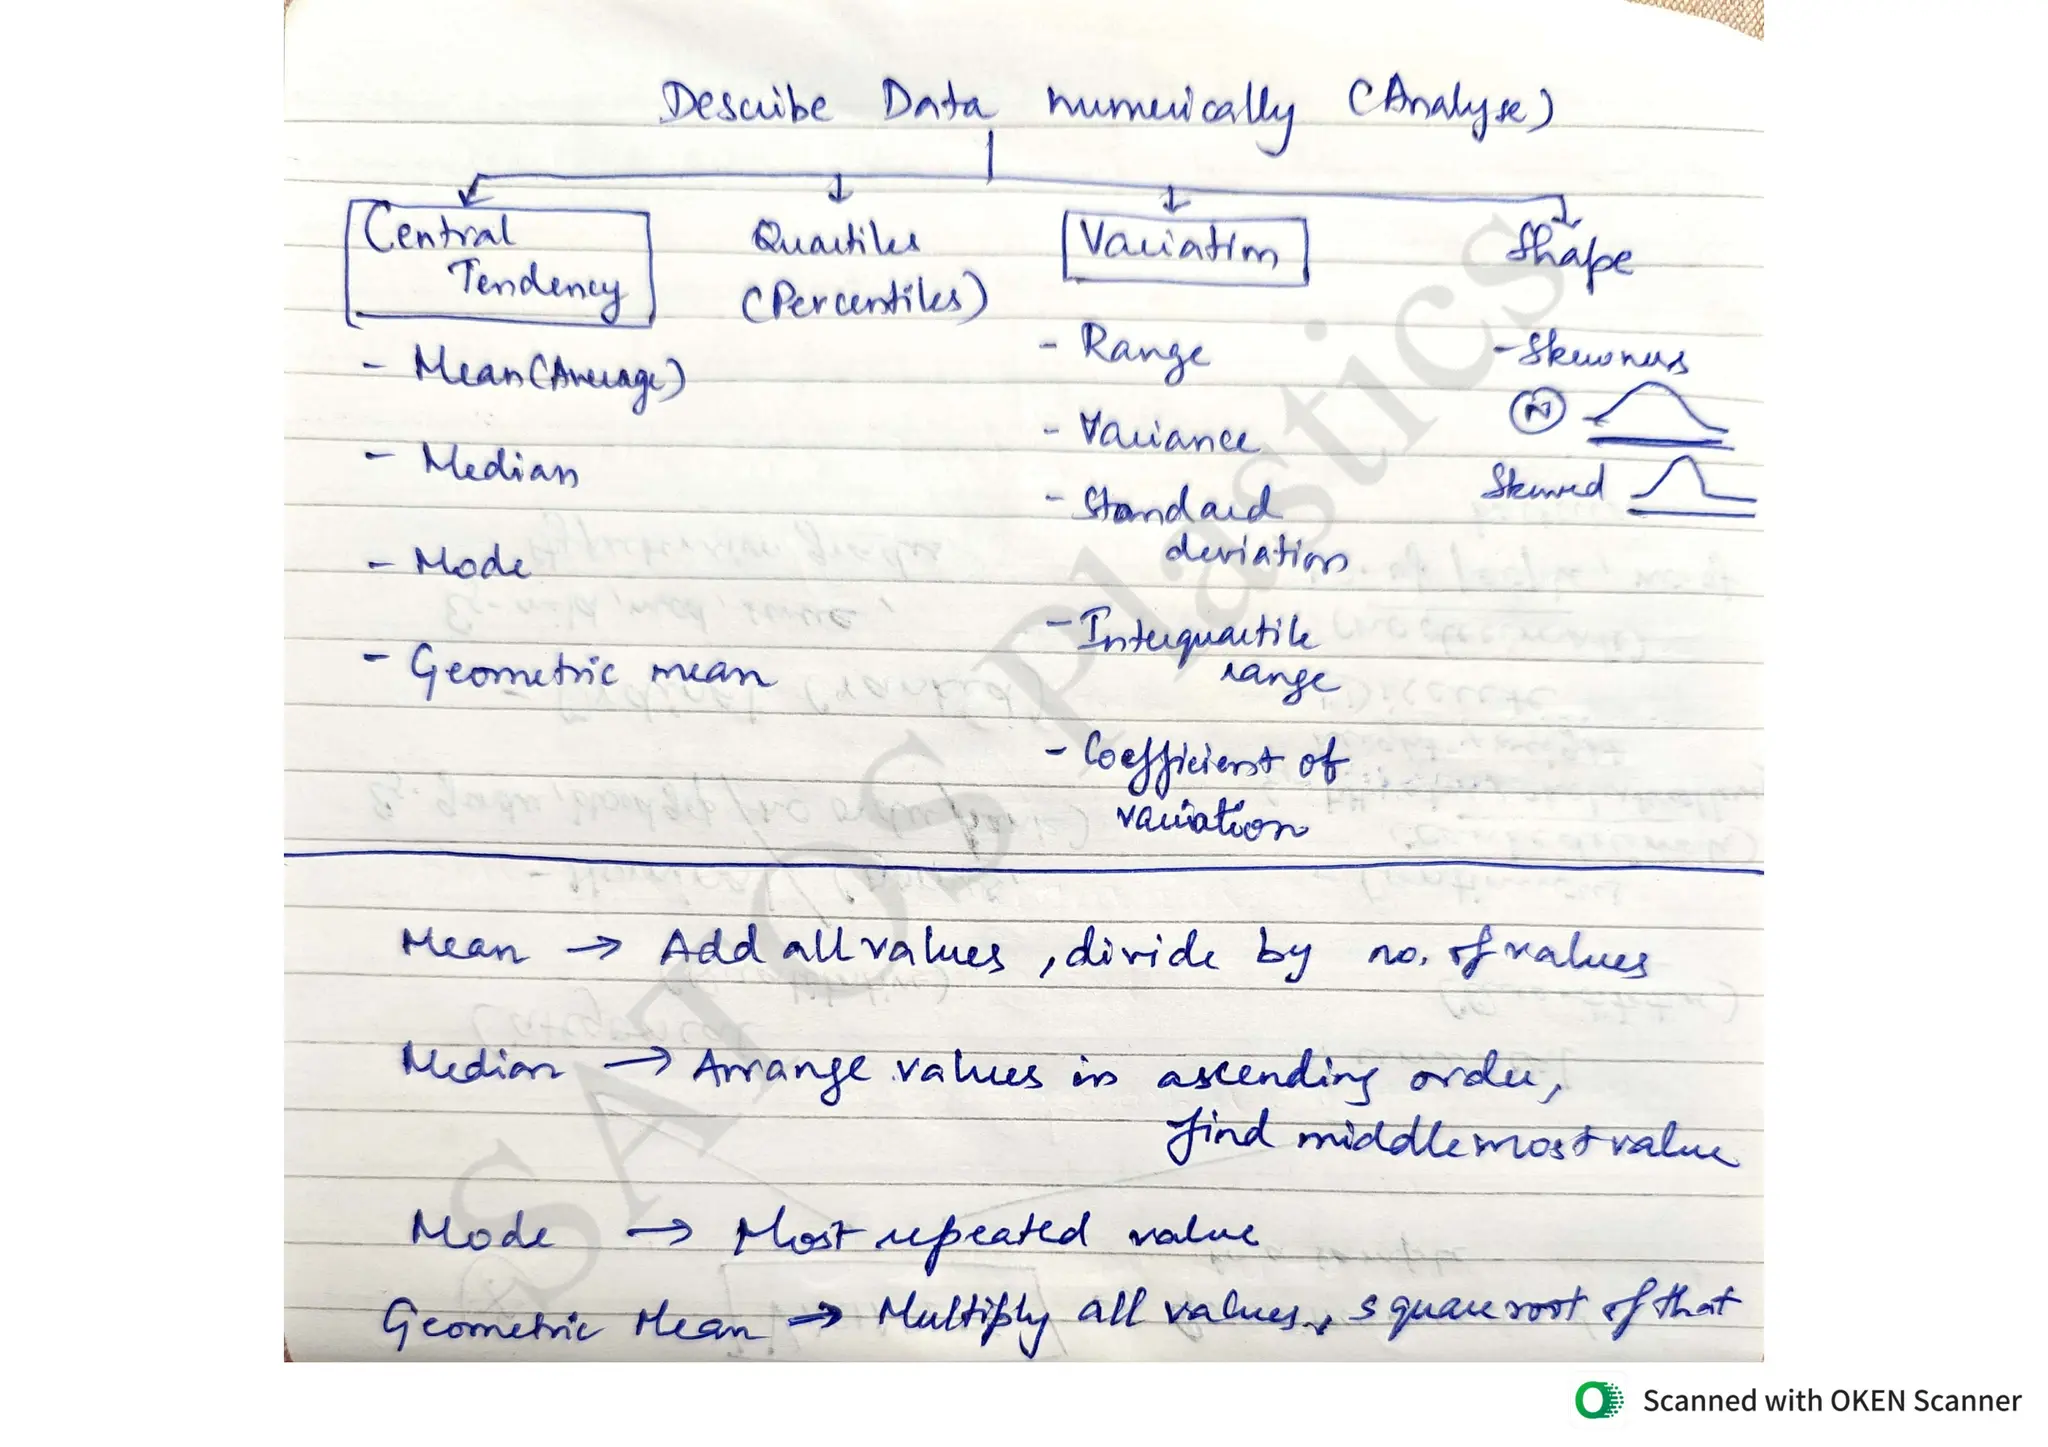 Describe Data numerically (Analyse)
Central
Tendency
- Mean (Average)
- Median
- Mode
- Geometric mean
Quartiles
(Percentiles)
Variation
- Range
- Variance
- Standard
deviation
- Interquartile
range
- Coefficient of
variation
Shape
- Skewness
N
Skewed
Mean → Add all values, divide by no. of values
Median → Arrange values in ascending order,
find middle most value
Mode → Most repeated value
Geometric Mean → Multiply all values, square root of that
SATOS Plastics
Scanned with OKEN Scanner